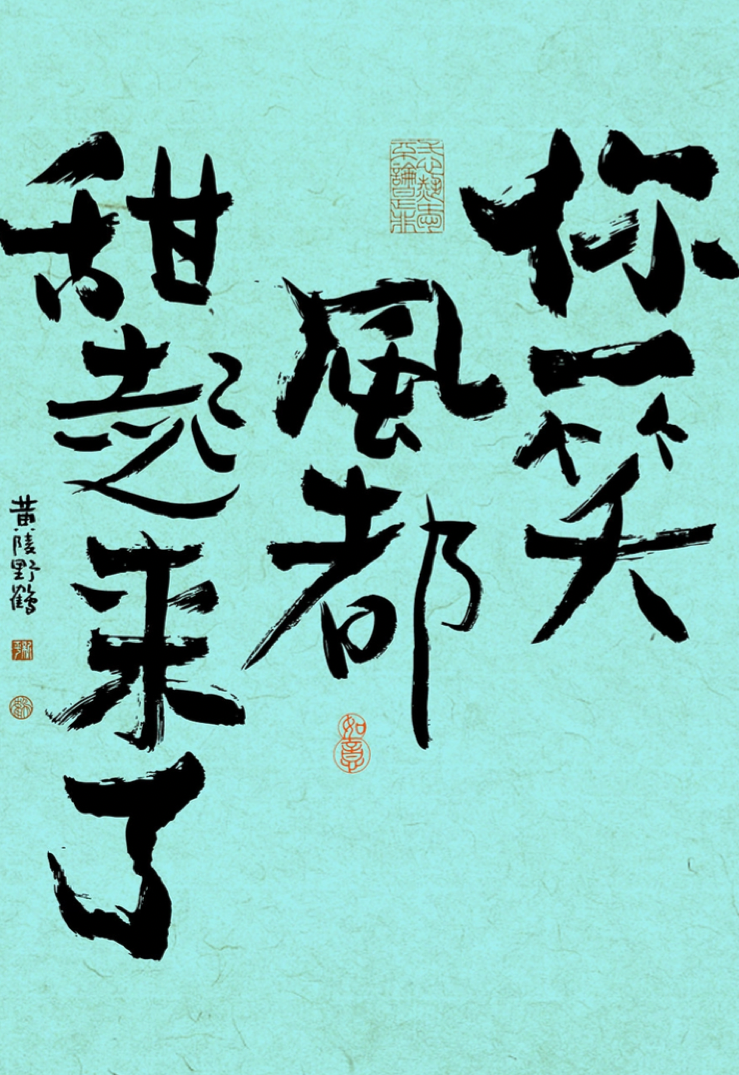 你一笑
風都
甜起来了
黄陵野鶴
如意